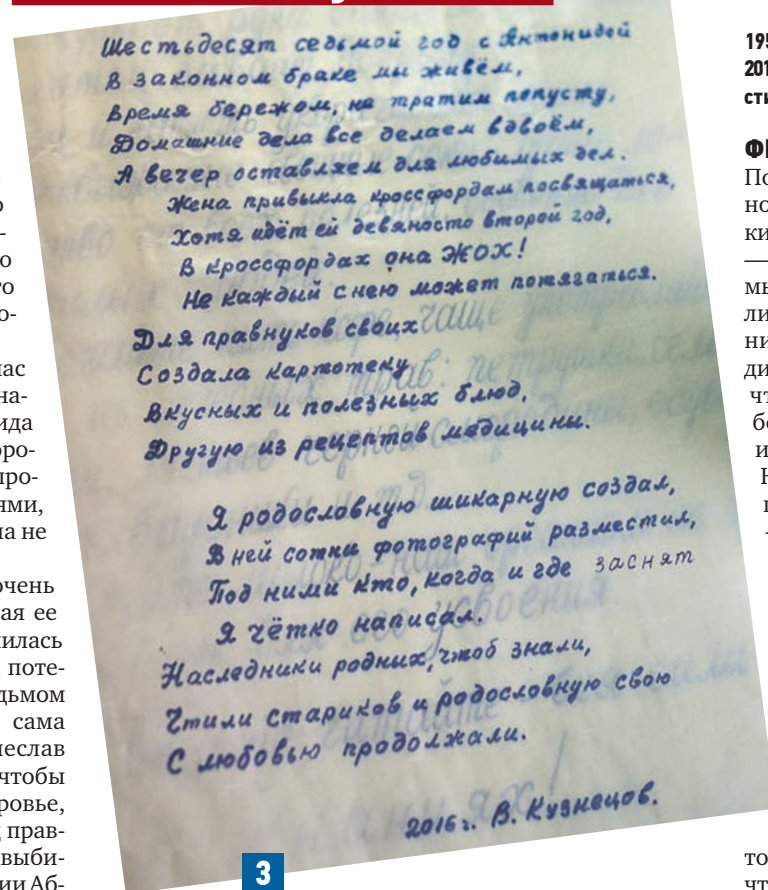 Шестьдесят седьмой год с Антонидой
В законном браке мы живём,
Время бережом, не тратим попусту,
Домашние дела все делаем вдвоём,
А вечер оставляем для любимых дел.
Жена привыкла кроссфордам посвящаться,
Хотя идёт ей девяносто второй год,
В кроссфордах она ЖОХ!
Не каждый с нею может потягаться.
Для правнуков своих
Создала картотеку
Вкусных и полезных блюд,
Другую из рецептов медицины.
Я родословную шикарную создал,
В ней сотни фотографий разместил,
Под ними кто, когда и где заснят
Я чётко написал.
Наследники родных, чтоб знали,
Чтили стариков и родословную свою
С любовью продолжали.
2016 г. В. Кузнецов.
3
195
201
сти
ФІ
По
но
ки
—
мы
ли
ни
ди
чт
бо
и
то
чт
о
-
ю
го
о-
нас
на-
ида
оро-
про-
ями,
на не
очень
ая ее
илась
поте-
дьмом
сама
чеслав
чтобы
ровье,
прав-
выби-
ии Аб-